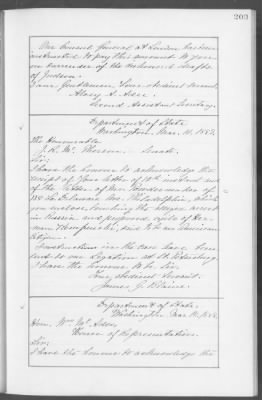 203
Our Consul General at London has been
instructed to pay this amount to you
on surrender of the
of
I am, Gentlemen, Your obedient servant,
Alvey A. Adee.
Second Assistant Secretary.
Department of State
Washington, Mar. 11,
The Honorable
J. R. Mc Pherson Senate.
Sir:
I have the honor to acknowledge the
receipt of your letter of 10th instant and
of the letter of
Delaware Ave Philadelphia, which
you enclose, touching the alleged arrest
in Russia and proposed exile of
man said to be an American
citizen.
Instructions in the case have been
sent to our Legation at St. Petersburg.
I have the honor to be, Sir,
Your obedient servant,
James G. Blaine.
Department of State.
Washington, Mar.
Hon. Wm
House of Representatives.
Sir:
I have the honor to acknowledge the